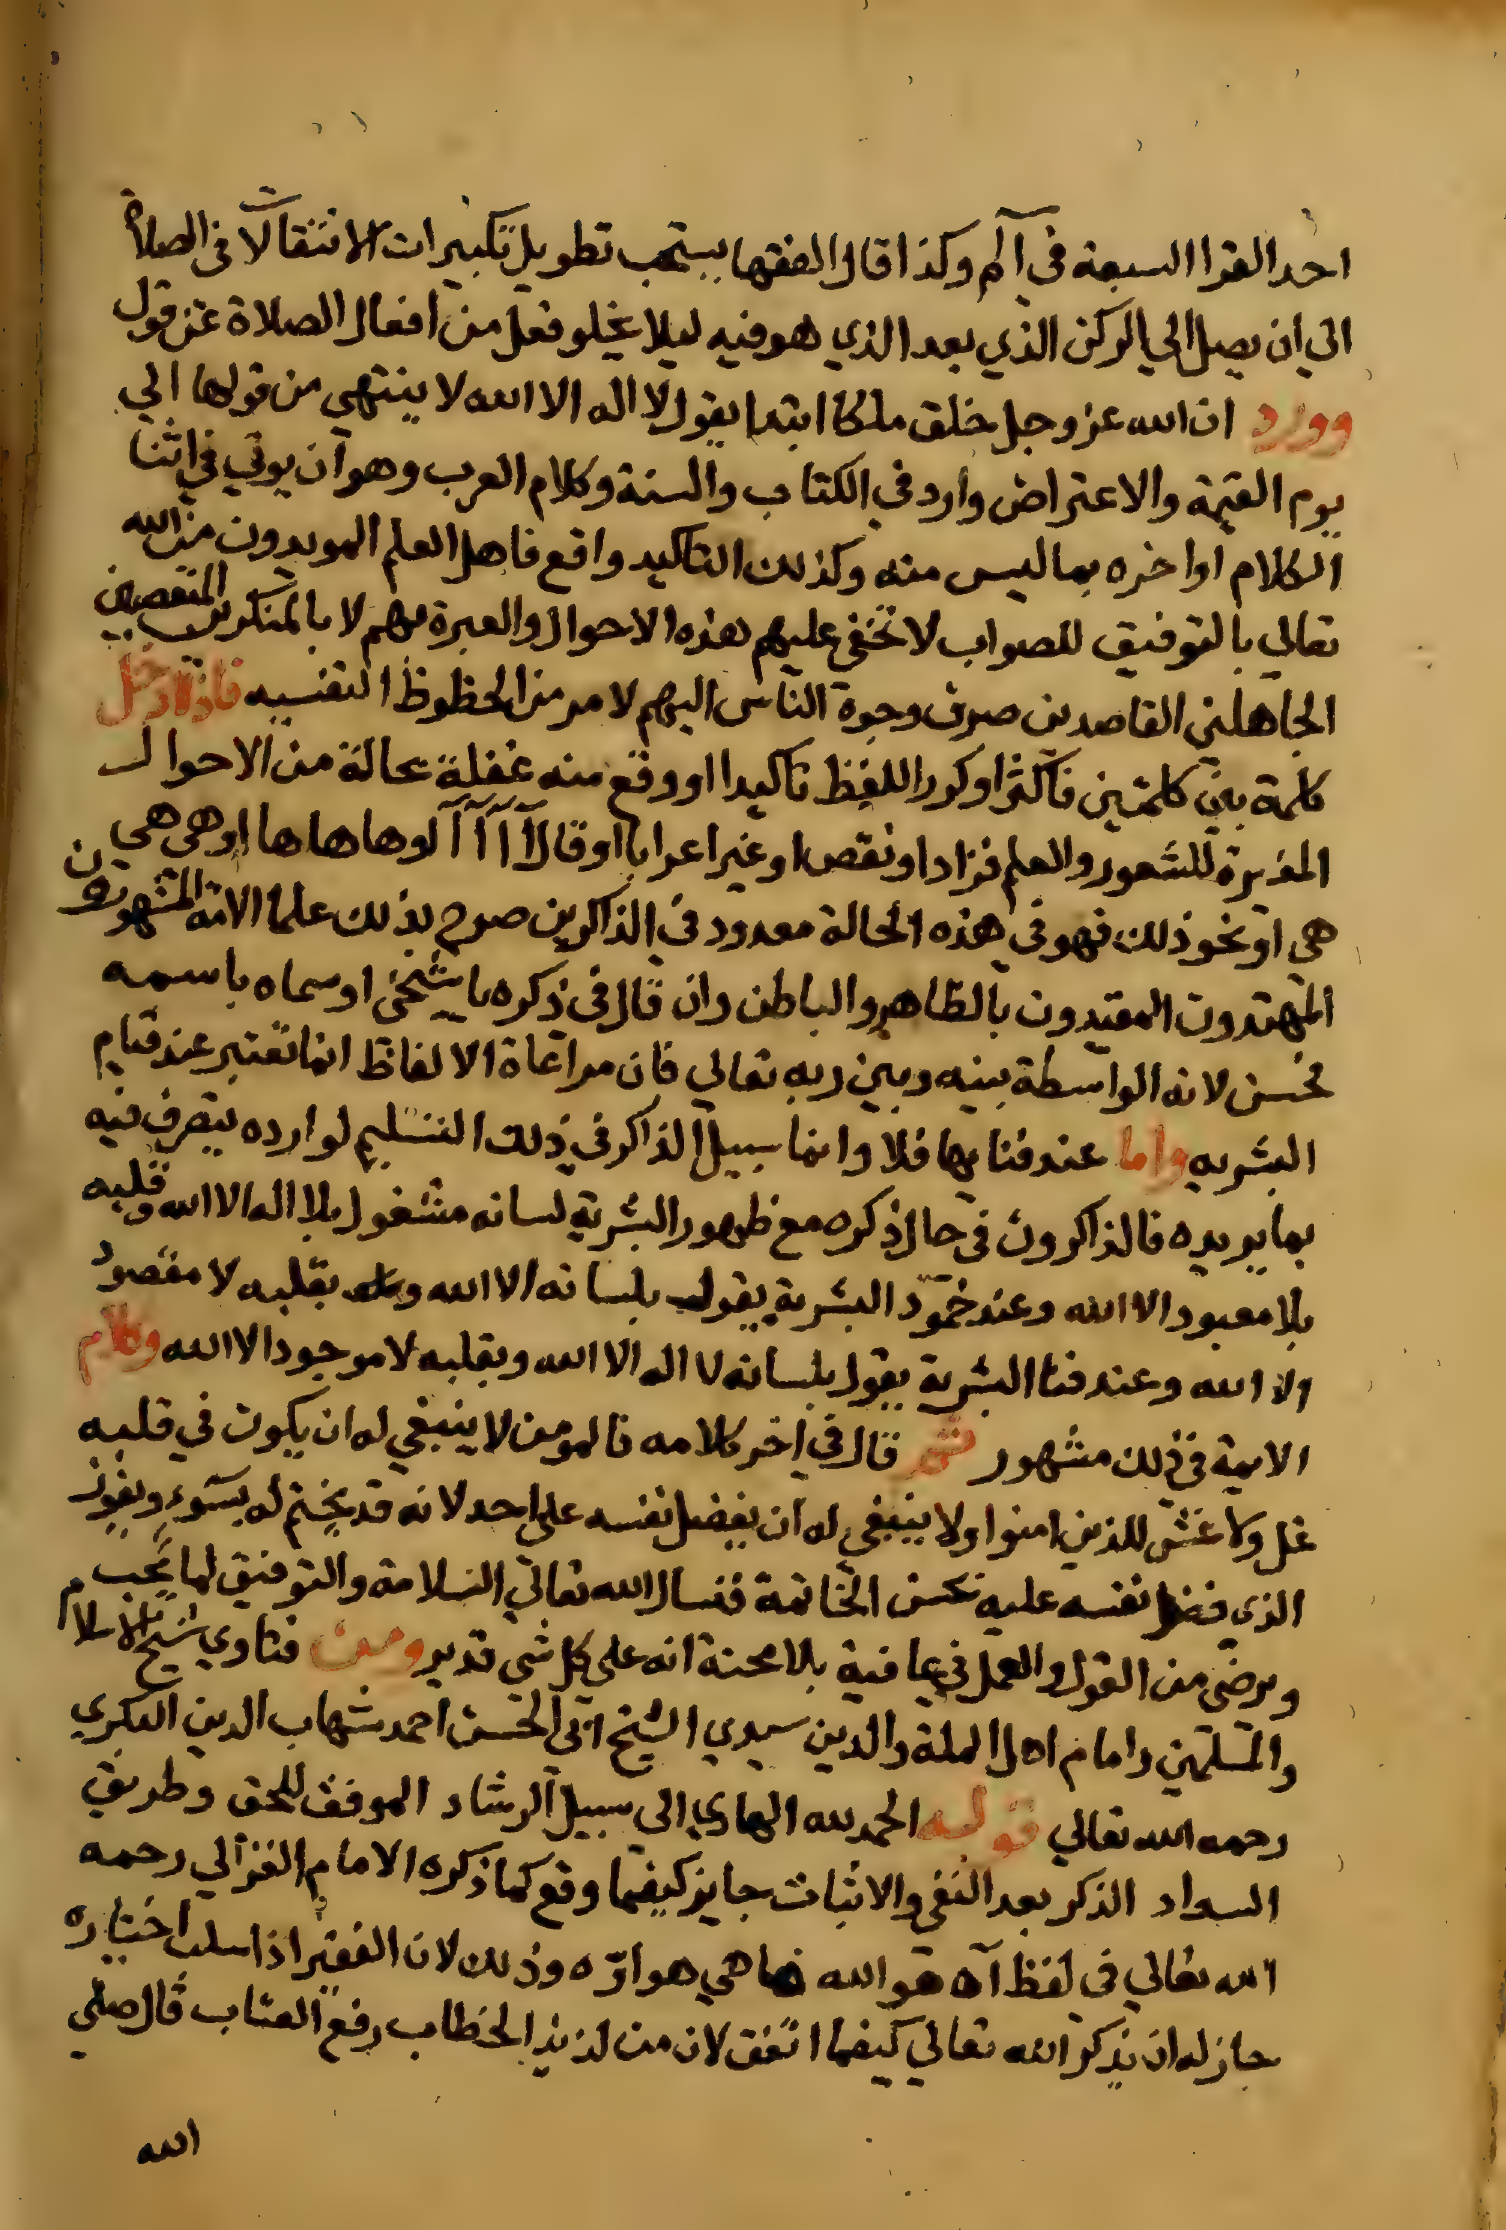 احد القرا السبعة في آلم وكذا قال الفقها يستحب تطويل تكبيرات الانتقالات في الصلاة
الي ان يصل الي الركن الذي بعد الذي هو فيه ليلا يخلو فعل من افعال الصلاة عن قول
وورد ان الله عز وجل خلق ملكا ابتدا يقول لا اله الا الله لا ينتهي من قولها الي
يوم القيمة والاعتراض وارد في الكتاب والسنة وكلام العرب وهو ان يوتي في اثنا
الكلام او اخره بما ليس منه وكذلك التاكيد واقع فاهل العلم المويدون من الله
تعالي بالتوفيق للصواب لا تخفي عليهم هذه الاحوال والعبرة بهم لا بالمنكرين المتعصبين
الجاهلين القاصدين صرف وجوة الناس اليهم لامر من الحظوظ النفسيه فاذا دخل
كلمة بين كلمتين فاكثر او كرر اللفظ تاكيدا او وقع منه غفلة بحالة من الاحوال
المغيرة للشعور والعلم فزاد او نقص او غير اعرابا او قال آ آ آ آ لوها ها ها او هي هي
هي او نحو ذلك فهو في هذه الحالة معدود في الذاكرين صرح بذلك علما الامة المشهورون
المهتدون المقيدون بالظاهر والباطن وان قال في ذكره يا شيخي او سماه باسمه
فحسن لانه الواسطة بينه وبين ربه تعالي فان مراعاة الالفاظ انما تعتبر عند قيام
البشريه واما عند فنايها فلا وانما سبيل الذاكر في ذلك التسليم لوارده يتصرف فيه
بما يريده فالذاكرون في حال ذكره مع ظهور البشرية لسانه مشغول بلا اله الا الله وقلبه
بلا معبود الا الله وعند خمود البشرية يقول بلسانه الا الله بقلبه لا مقصود
الا الله وعند فنا البشرية يقول بلسانه لا اله الا الله وبقلبه لا موجود الا الله وكلام
الايمة في ذلك مشهور ثم قال في اخر كلامه فالمومن لا ينبغي له ان يكون في قلبه
غل ولا غش للذين امنوا ولا ينبغي له ان يفضل نفسه علي احد لانه قد يختم له بسوء ويفوز
الذي فضل نفسه عليه بحسن الخاتمة فنسال الله تعالي السلامة والتوفيق لما يحب
ويرضي من القول والعمل في عافية بلا محنة انه علي كل شي قدير ومن فتاوي شيخ الاسلام
والمسلمين وامام اهل الملة والدين سيدي الشيخ ابي الحسن احمد شهاب الدين البكري
رحمه الله تعالي قوله الحمد لله الهادي الي سبيل الرشاد الموفق للحق وطريق
السداد الذكر بعد النفي والاثبات جايز كيفما وقع كما ذكره الامام الغزالي رحمه
الله تعالي في لفظ آه هو الله ها هي هو اوّه وذلك لان الفقير اذا سلب اختياره
جاز له ان يذكر الله تعالي كيفما اتفق لان من لذيذ الخطاب رفع العتاب قال صلي
الله